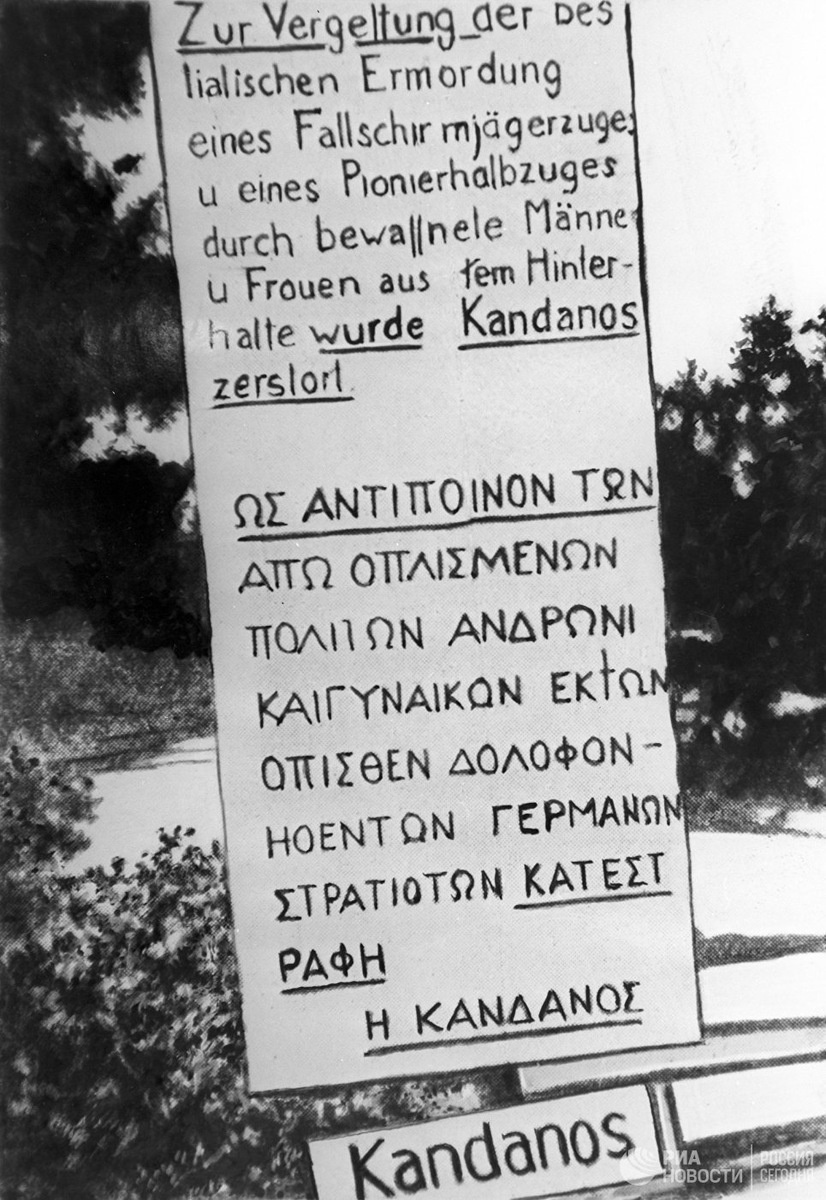 Zur Vergeltung der bes
lialischen Ermordung
eines Fallschirmjägerzuges
u eines Pionierhalbzuges
durch bewallnele Männer
u Frouen aus tem Hinler-
halte wurde Kandanos
zerslorl.
ΩΣ ΑΝΤΙΠΟΙΝΟΝ ΤΩΝ
ΑΠΩ ΟΠΛΙΣΜΕΝΩΝ
ΠΟΛΙΤΩΝ ΑΝΔΡΩΝΙ
ΚΑΙΓΥΝΑΙΚΩΝ ΕΚΤΩΝ
ΟΠΙΣΘΕΝ ΔΟΛΟΦΟΝ-
ΗΟΕΝΤΩΝ ΓΕΡΜΑΝΩΝ
ΣΤΡΑΤΙΟΤΩΝ ΚΑΤΕΣΤ
ΡΑΦΗ
Η ΚΑΝΔΑΝΟΣ
Kandanos
РИА НОВОСТИ
РОССИЯ СЕГОДНЯ